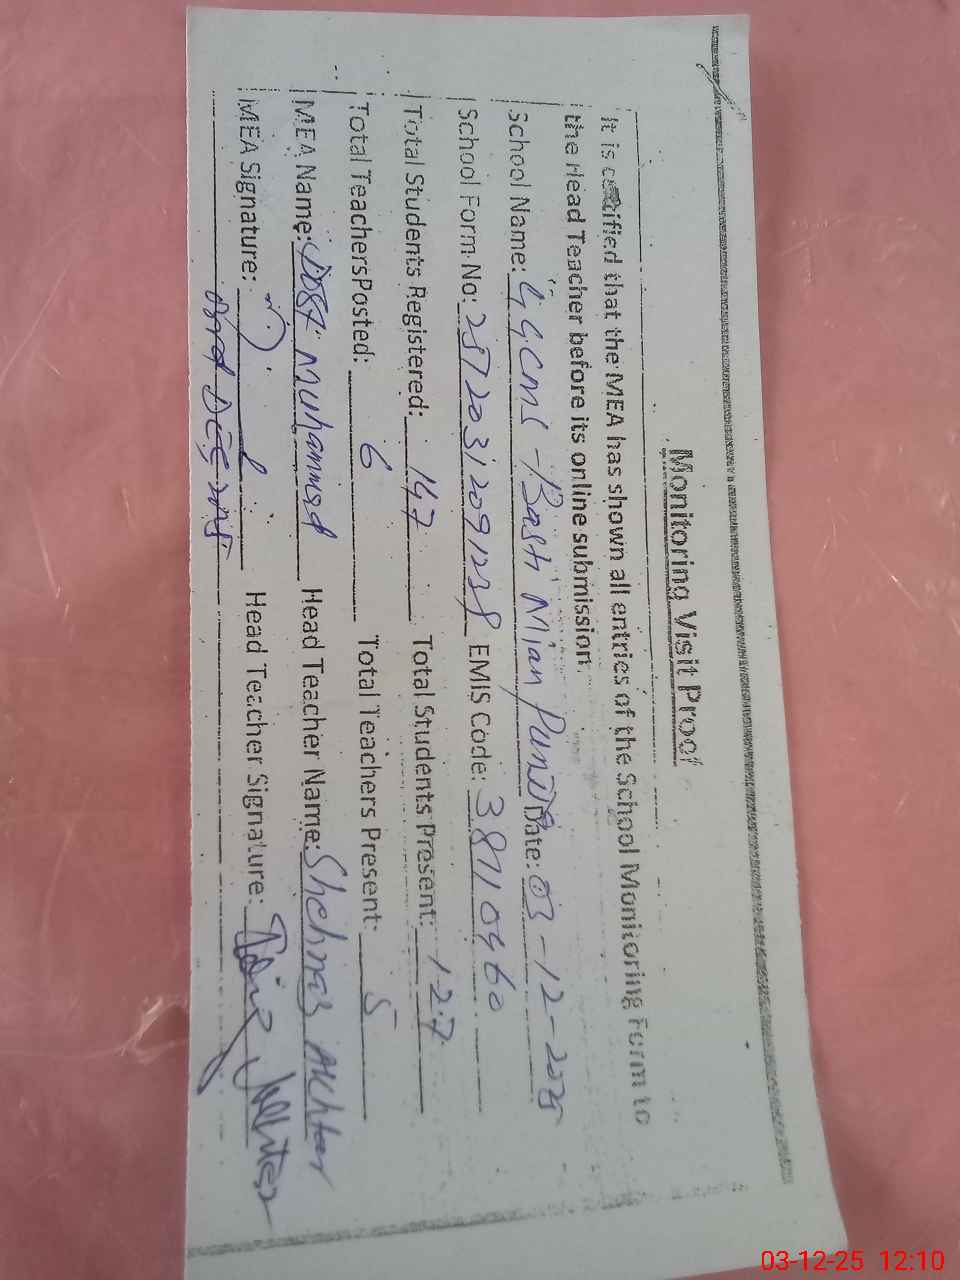 Monitoring Visit Proof
It is certified that the MEA has shown all entries of the School Monitoring Form to
the Head Teacher before its online submission.
School Name: GGCMS - Basti Mian Date: 03-12-2025
School Form No: EMIS Code: 38710460
Total Students Registered: 147 Total Students Present: 127
Total TeachersPosted: 6 Total Teachers Present: 5
MEA Name: Dost Muhammad Head Teacher Name: Shehnas Akhter
MEA Signature: Head Teacher Signature:
03rd DEC 2025
03-12-25 12:10